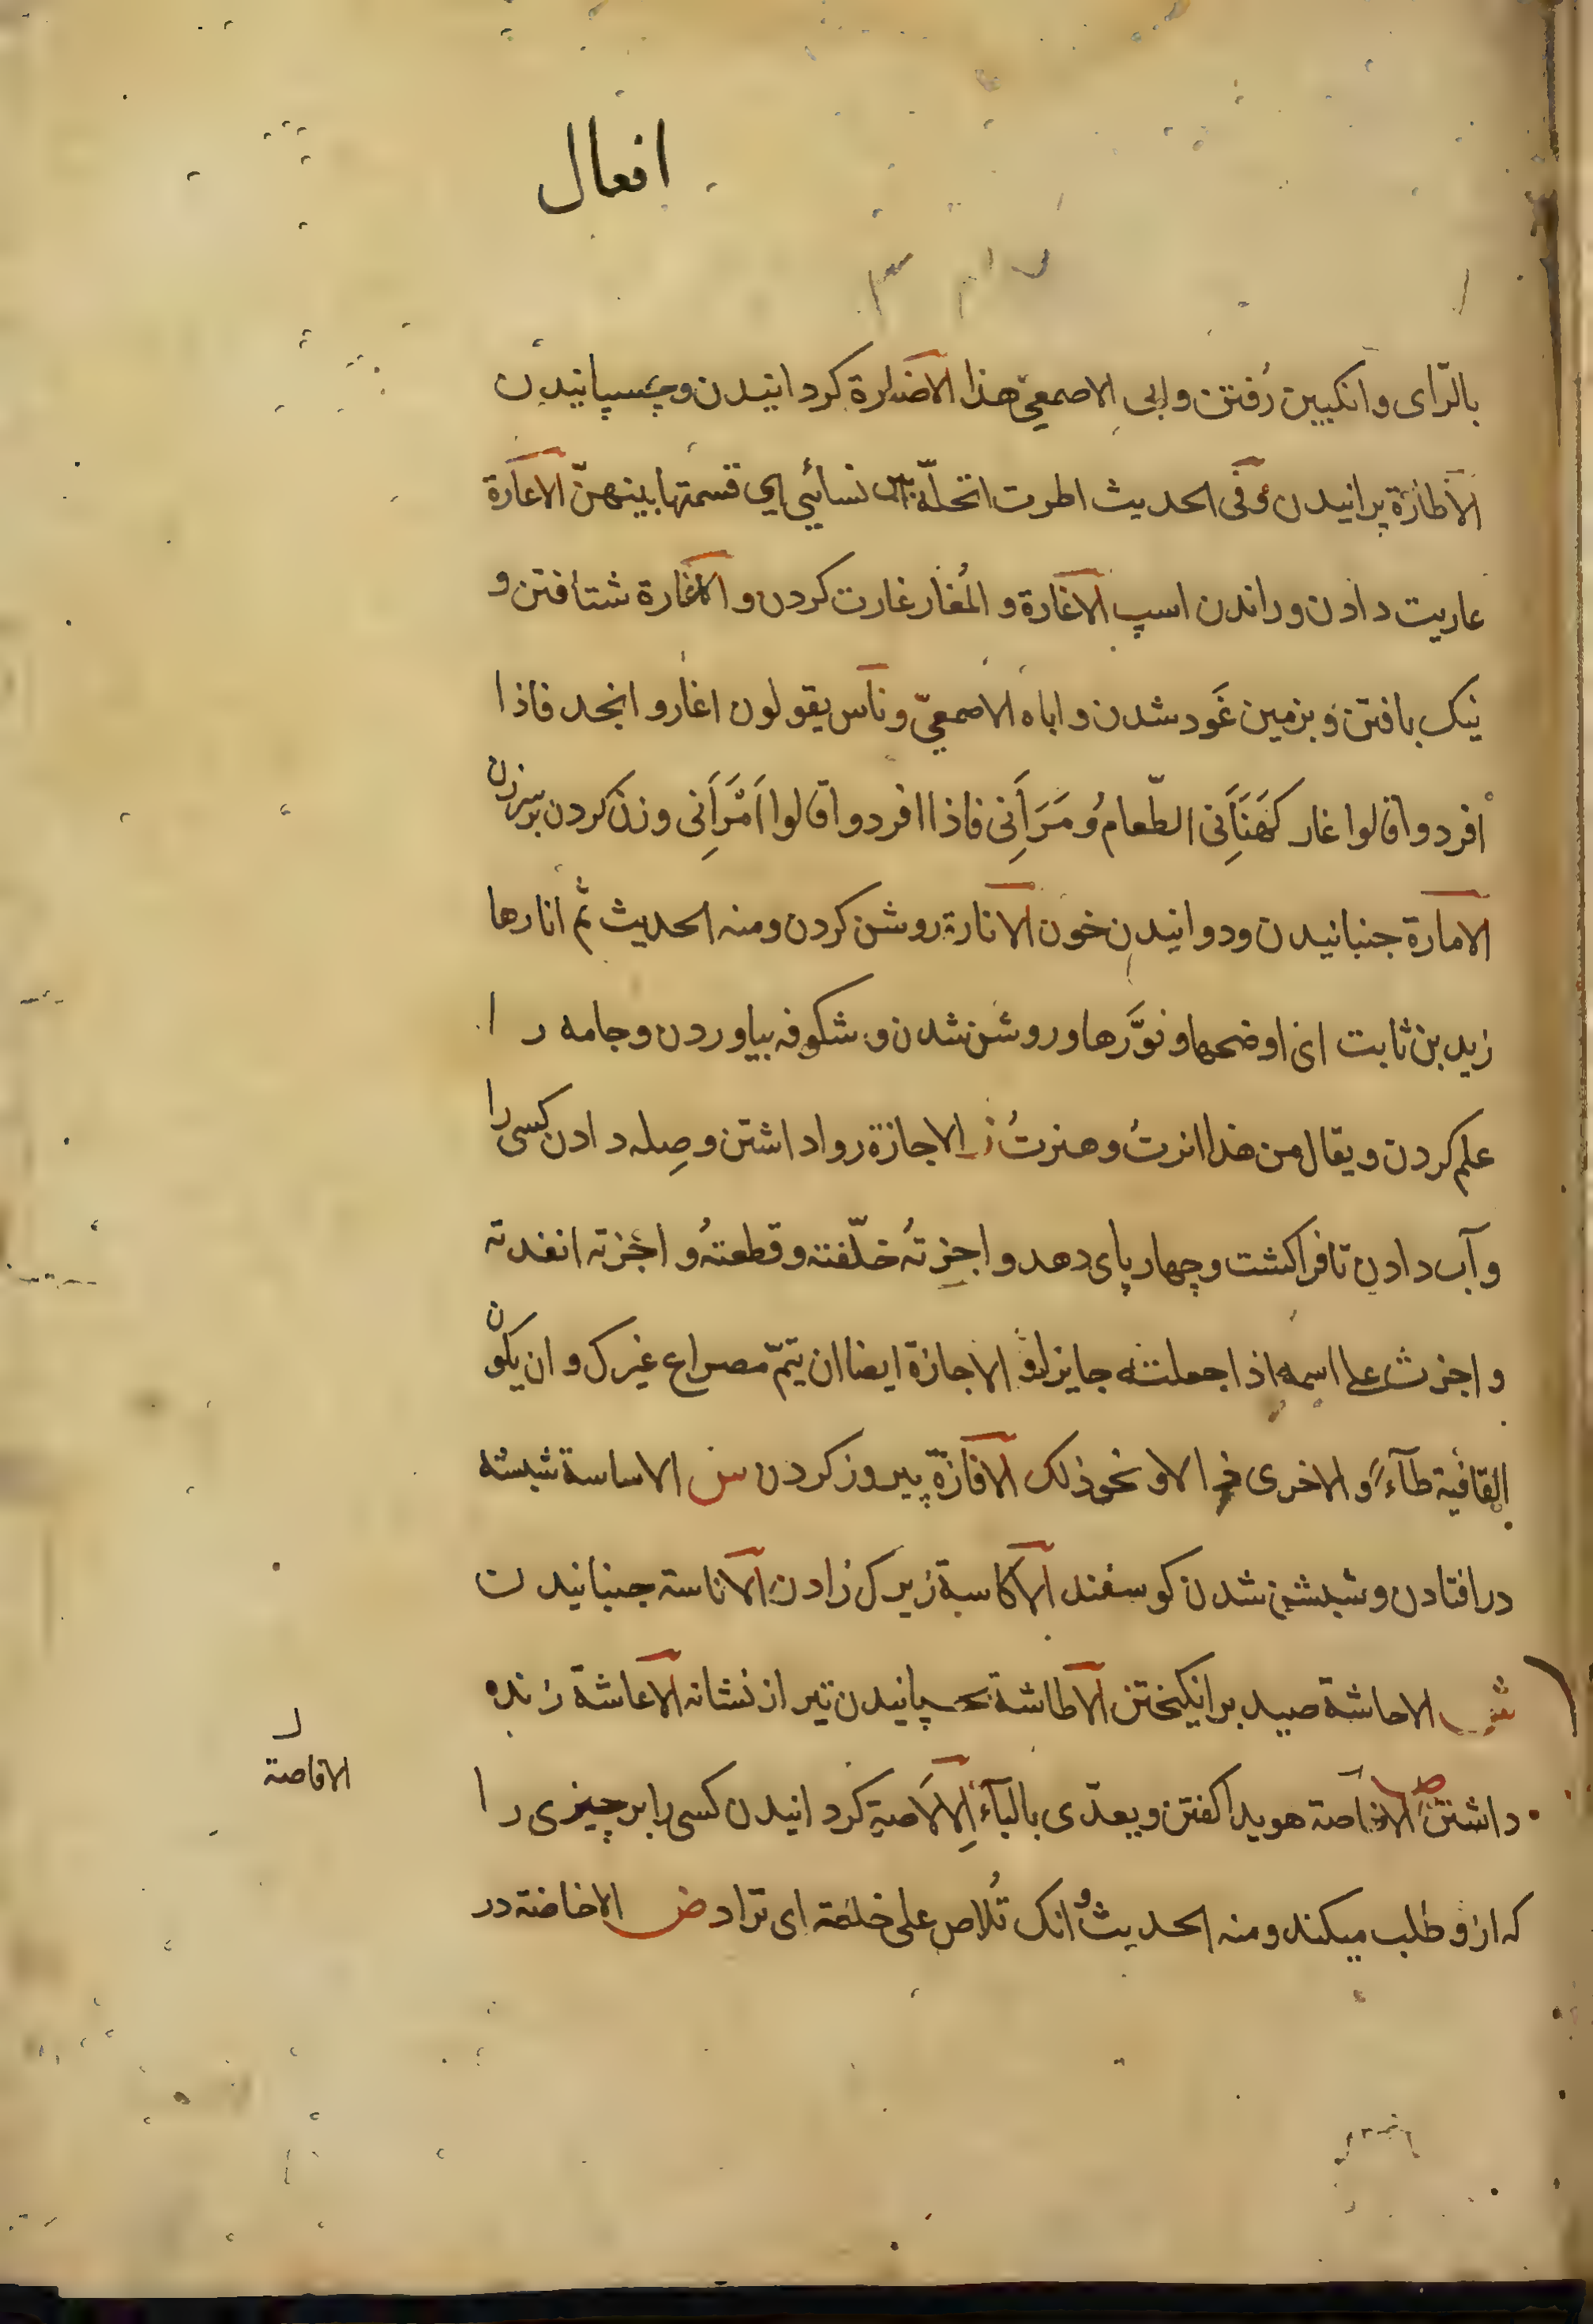 افعال
بالرّای وانکبین رُفتن وابی الاصمعیّ هذا الاضارة کردانیدن وچسپانیدن
الاطارة پرانیدن وفی الحدیث اطرت اتحلّة بین نسائی ای قسمتها بینهنّ الاعارة
عاریت دادن وراندن اسپ الاغارة و المُغار غارت کردن و الاغارة شتافتن و
نیک بافتن وبزمین غَور شدن و اباه الاصمعیّ وناس یقولون اغار و انجد فاذا
افردوا قالوا غار کهَنَاَنِی الطّعام وُمَرَاَنِی فاذا افردوا قالوا اَمْرَاَنِی و زن کردن برسرزن
الامارة جنبانیدن ودوانیدن خون الانارة روشن کردن ومنه الحدیث ثم انارها
زید بن ثابت ای اوضحها ونوَّرها وروشن شدن و شکوفه بیاوردن وجامه را
علم کردن و یقال من هذا انرتُ وهنرتُ ز الاجازة روا داشتن وصِله دادن کسی را
و آب دادن تا فراکشت وچهارپای دهد و اجزتهُ خلّفته وقطعتهُ و اجزته انفدته
و اجزت علی اسمه اذا جعلته جایزا و الاجازة ایضا ان یتمّ مصراع غیرک و ان یکون
القافیة طآءً و الاخری الا ونحو ذلک الافازة پیروز کردن س الاساسة شبشه
درافتادن و شبشن شدن کوسفند الاکاسة زیرک زادن الاناسة جنبانیدن
ش الاحاشة صید برانکیختن الاطاشة بچسپانیدن تیر از نشانه الاعاشة زنده
داشتن ص الافاصة هویدا کفتن ویعدّی بالبآء الالاصة کردانیدن کسی را برچیزی را
الافاصة
که ازو طلب میکند ومنه الحدیث وانک تُلاص علی خلعة ای تراد ض الاخاضة در